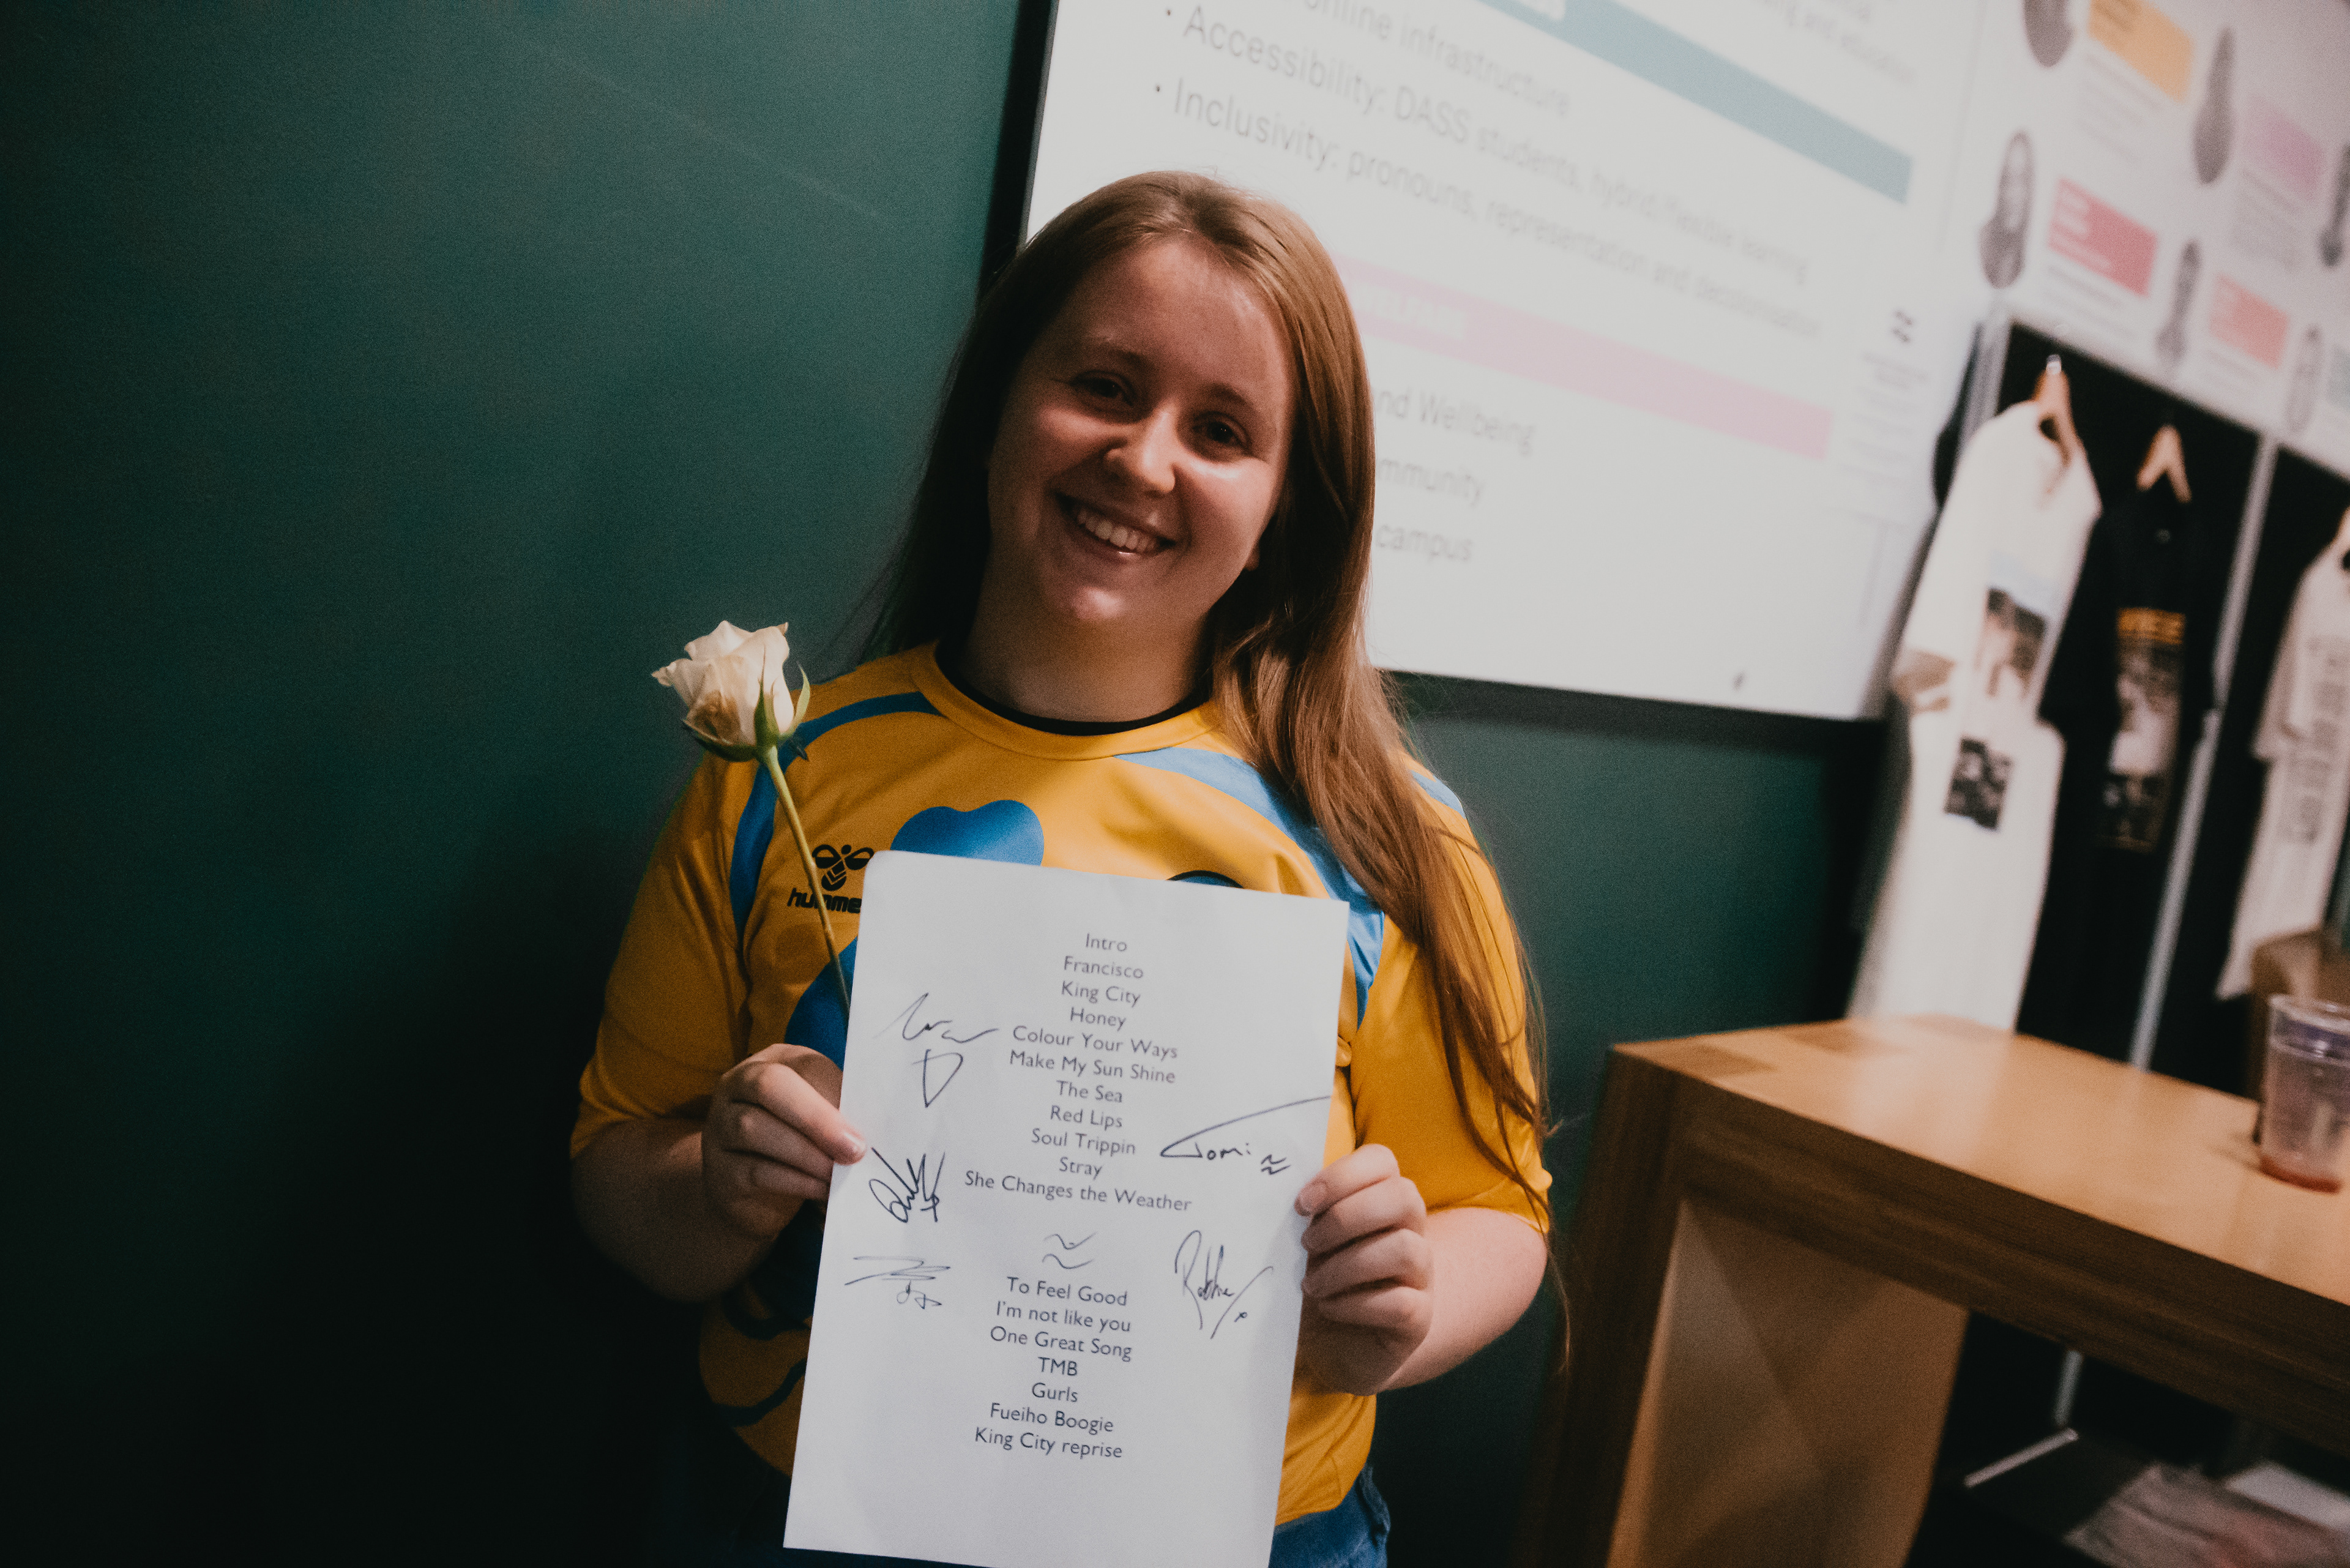 online infrastructure
• Accessibility: DASS students, hybrid/flexible learning
• Inclusivity: pronouns, representation and decolonisation
WELFARE
and Wellbeing
mmunity
campus
humme
Intro
Francisco
King City
Honey
Colour Your Ways
Make My Sun Shine
The Sea
Red Lips
Soul Trippin
Stray
She Changes the Weather
Tomi
Robbie x
To Feel Good
I'm not like you
One Great Song
TMB
Gurls
Fueiho Boogie
King City reprise